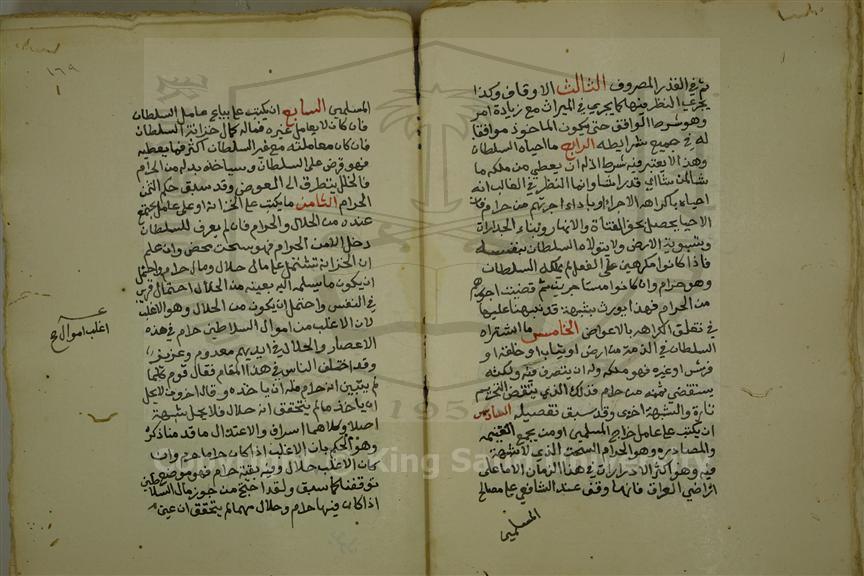 ثم في القدر المصروف الثالث الاوقاف وكذا
يجري النظر فيها كما يجري في الميراث مع زيادة امر
وهو شرط الواقف حتى يكون الماخوذ موافقا
له في جميع شرايطه الرابع ما احياه السلطان
وهذا لا يعتبر فيه شرط اذ له ان يعطي من ملكه ما
شا لمن شا اي قدر شا وانما النظر في الغالب انه
احياه باكراه الاجراء او باداء اجرتهم من حرام فان
الاحيا يحصل بحفر القناة والانهار وبناء الجدارات
وتسوية الارض ولا يتولاه السلطان بنفسه
فاذا كانوا مكرهين على الفعل لم يملكه السلطان
وهو حرام وان كانوا مستاجرين ثم قضيت اجورهم
من الحرام فهذا يورث شبهة قد نبهنا عليها
في تعلق الكراهه بالاعواض الخامس ما اشتراه
السلطان في الذمة من ارض او ثياب او خلعة او
فرس او غيره فهو ملكه وله ان يتصرف فيه ولكنه
سيقضي ثمنه من حرام فذلك الذي يقتضي التحريم
تارة والشبهة اخرى وقد سبق تفصيله السادس
ان يكتب على عامل خراج المسلمين او من يجمع الغنيمه
والمصادره وهو الحرام السحت الذي لا شبهة
فيه وهو اكثر الادرارات في هذا الزمان الا ما على
اراضي العراق فانها وقف عند الشافعي على مصالح
المسلمين
١٦٩
المسلمين السابع ان يكتب على بياع عامل السلطان
فان كان لا يعامل غيره فماله كمال خزانة السلطان
فان كان معاملته مع غير السلطان اكثر فما يعطيه
فهو قرض على السلطان وسياخذ بدله من الحرام
فالخلل يتطرق الى العوض وقد سبق حكم الثمن
الحرام الثامن ما يكتب على الخزانة او على عامل يجتمع
عنده من الحلال والحرام فان لم يعرف للسلطان
دخل الا من الحرام فهو سحت محض وان علم
ان الخزانة تشتمل على مال حلال ومال حرام واحتمل
ان يكون ما يسلمه اليه بعينه من الحلال احتمال قريب
في النفس واحتمل ان يكون من الحلال وهو الاغلب
لان الاغلب من اموال السلاطين حرام في هذه
الاعصار والحلال في ايديهم معدوم وعزيز
وقد اختلف الناس في هذا المقام فقال قوم كلما
لم يتبين انه حرام فله ان ياخذه وقال اخرون لا يحل
ان ياخذ ما لم يتحقق انه حلال فلا يحل شبهة
اصلا وكلاهما اسراف والاعتدال ما قد منا ذكره
وهو الحكم بان الاغلب اذا كان حراما حرم وان
كان الاغلب حلال وفيه يقين حرام فهو موضع
توقفنا كما سبق ولقد احتج من جوز مال السلاطين
اذا كان فيها حرام وحلال مهما لم يتحقق ان عين
اغلب اموال